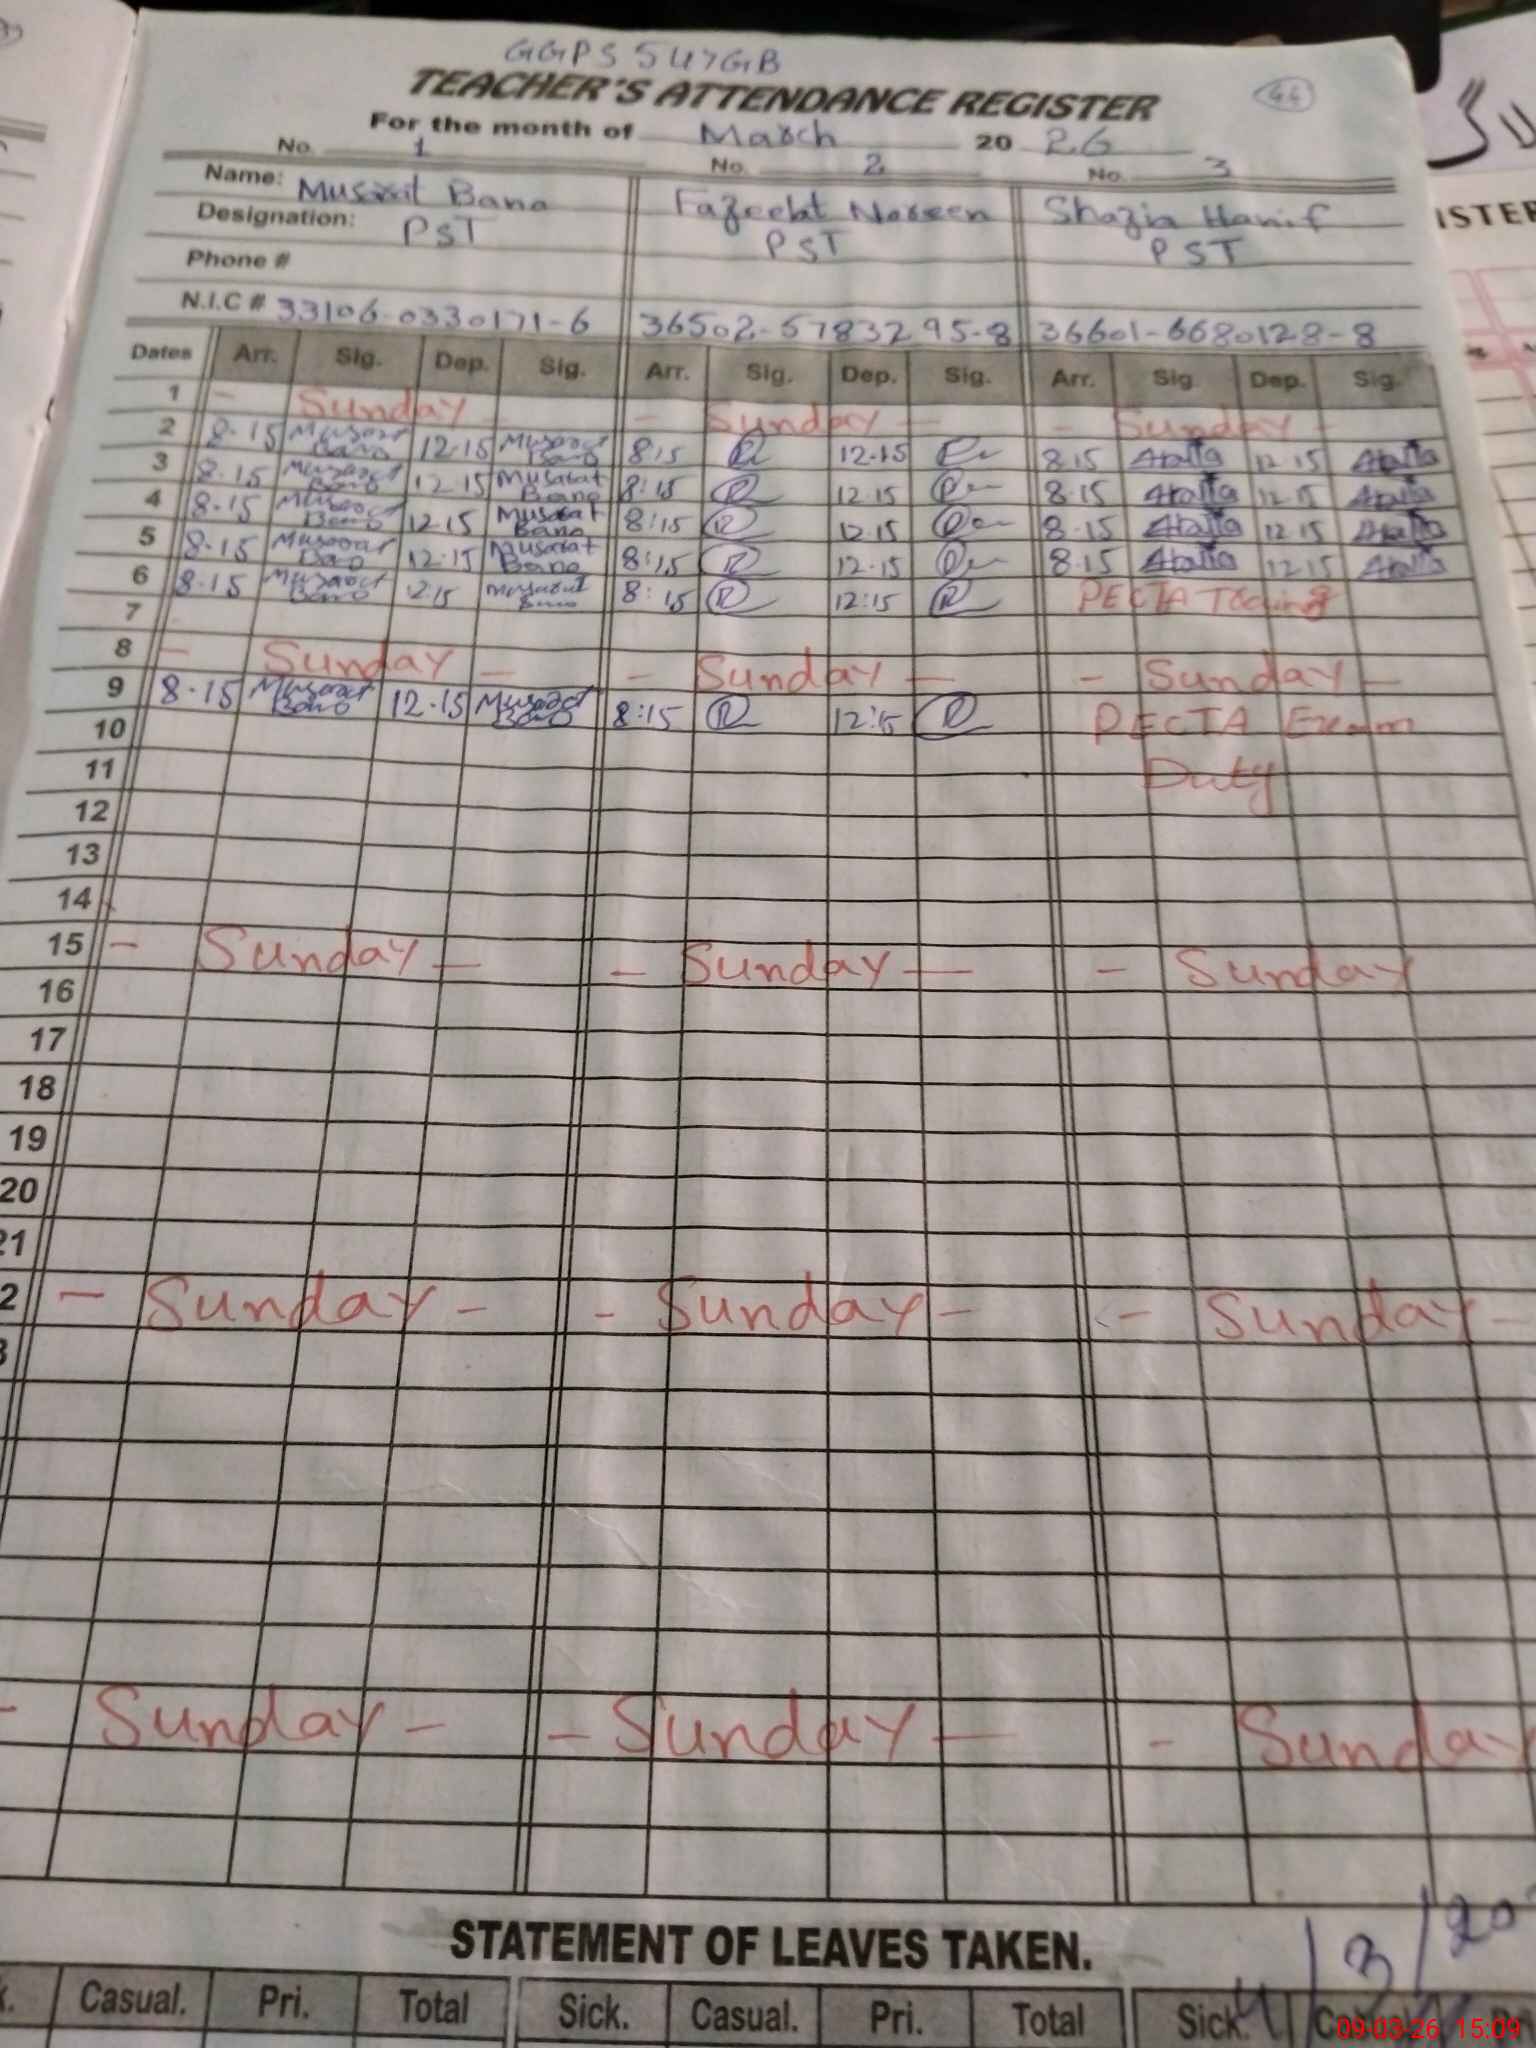 GGPS 547GB
TEACHER'S ATTENDANCE REGISTER
44
For the month of March 20 26
No. 1 No. 2 No. 3
Name: Musarat Bano Fazeelat Noreen Shazia Hanif
Designation: PST PST PST
Phone #
N.I.C # 33106-0330171-6 36502-5783295-8 36601-6680128-8
Dates Arr. Sig. Dep. Sig. Arr. Sig. Dep. Sig. Arr. Sig. Dep. Sig.
1 - Sunday - - Sunday - - Sunday -
2 8.15 Musarat Bano 12.15 Musarat Bano 8:15 12.15 8.15 12.15
3 8.15 Musarat Bano 12.15 Musarat Bano 8:15 12.15 8.15 12.15
4 8.15 Musarat Bano 12.15 Musarat Bano 8:15 12.15 8.15 12.15
5 8.15 Musarat Bano 12.15 Musarat Bano 8:15 12.15 8.15 12.15
6 8.15 Musarat Bano 12.15 Musarat Bano 8:15 12:15 PECTA
7
8 - Sunday - - Sunday - - Sunday -
9 8.15 Musarat Bano 12.15 Musarat Bano 8:15 12:15 PECTA Exam
10 Duty
11
12
13
14
15 - Sunday - - Sunday - - Sunday
16
17
18
19
20
21
2 - Sunday - - Sunday - - Sunday -
3
- Sunday - - Sunday - - Sunday
STATEMENT OF LEAVES TAKEN.
Casual. Pri. Total Sick. Casual. Pri. Total Sick.
09-03-26 15:09